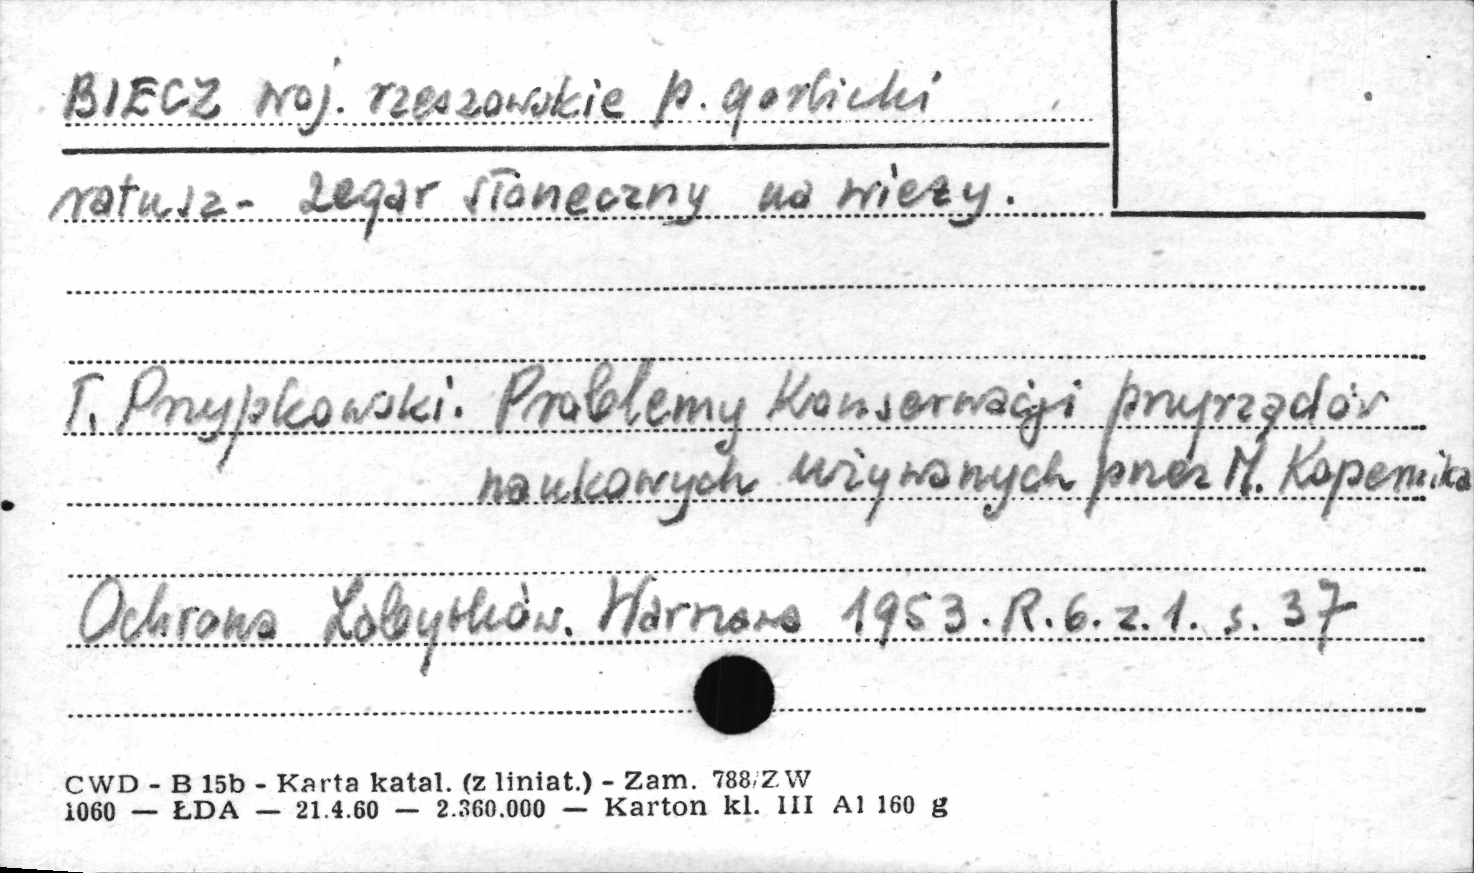 BIECZ woj. rzeszowskie p. gorlicki
ratusz - zegar słoneczny na wieży.
T. Przypkowski. Problemy Konserwacji przyrządów
naukowych używanych przez M. Kopernika
Ochrona Zabytków. Warszawa 1953. R. 6. z. 1. s. 37
CWD - B 15b - Karta katal. (z liniat.) - Zam. 788/ZW
1060 — ŁDA — 21.4.60 — 2.360.000 — Karton kl. III A1 160 g